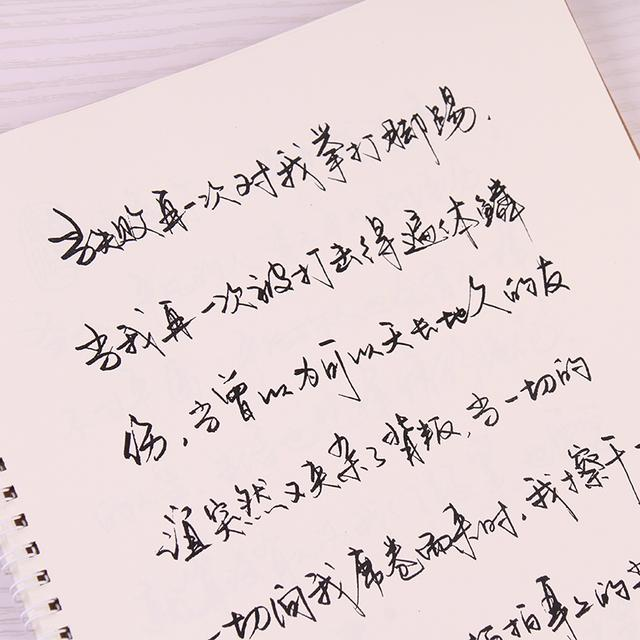 当失败再一次对我拳打脚踢.
当我再一次被打击得遍体鳞
伤,当曾以为可以天长地久的友
谊突然又夹杂了背叛,当一切的
一切向我席卷而来时,我擦干
拍拍身上的